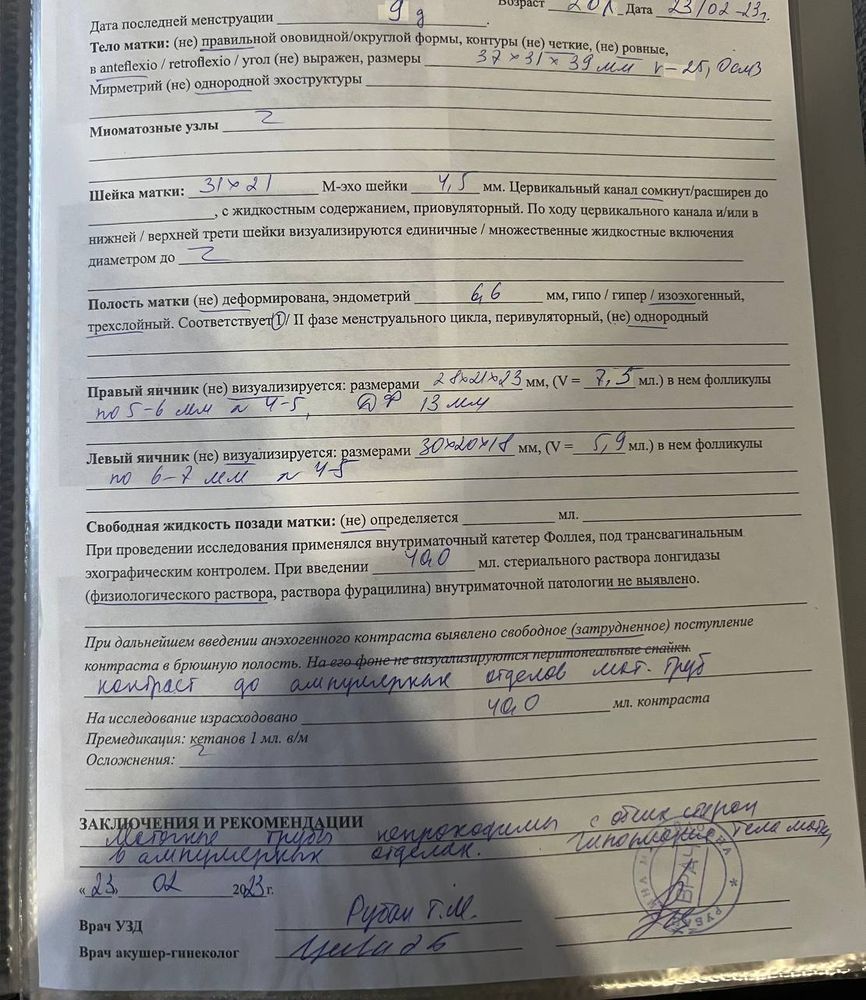 Дата последней менструации 9 д . Возраст 20 л Дата 23/02-23г.
Тело матки: (не) правильной ововидной/округлой формы, контуры (не) четкие, (не) ровные,
в anteflexio / retroflexio / угол (не) выражен, размеры 37×31×39 мм V-25,0см3
Мирметрий (не) однородной эхоструктуры
Миоматозные узлы
Шейка матки: 31×21 М-эхо шейки 4,5 мм. Цервикальный канал сомкнут/расширен до
, с жидкостным содержанием, приовуляторный. По ходу цервикального канала и/или в
нижней / верхней трети шейки визуализируются единичные / множественные жидкостные включения
диаметром до
Полость матки (не) деформирована, эндометрий 6,6 мм, гипо / гипер / изоэхогенный,
трехслойный. Соответствует I / II фазе менструального цикла, перивуляторный, (не) однородный
Правый яичник (не) визуализируется: размерами 28×21×23 мм, (V = 7,5 мл.) в нем фолликулы
по 5-6 мм n 4-5, ДФ 13 мм
Левый яичник (не) визуализируется: размерами 30×20×18 мм, (V = 5,9 мл.) в нем фолликулы
по 6-7 мм n 4-5
Свободная жидкость позади матки: (не) определяется мл.
При проведении исследования применялся внутриматочный катетер Фоллея, под трансвагинальным
эхографическим контролем. При введении 40,0 мл. стериального раствора лонгидазы
(физиологического раствора, раствора фурацилина) внутриматочной патологии не выявлено.
При дальнейшем введении анэхогенного контраста выявлено свободное (затрудненное) поступление
контраста в брюшную полость. На его фоне не визуализируются перитонеальные спайки.
контраст до ампулярных отделов мат. труб
На исследование израсходовано 40,0 мл. контраста
Премедикация: кетанов 1 мл. в/м
Осложнения:
ЗАКЛЮЧЕНИЯ И РЕКОМЕНДАЦИИ
Маточные трубы непроходимы с обеих сторон
в ампулярных отделах. Гипоплазия тела матки
«23» 02 2023 г.
Врач УЗД Рубан Т.М.
Врач акушер-гинеколог
ВРАЧ